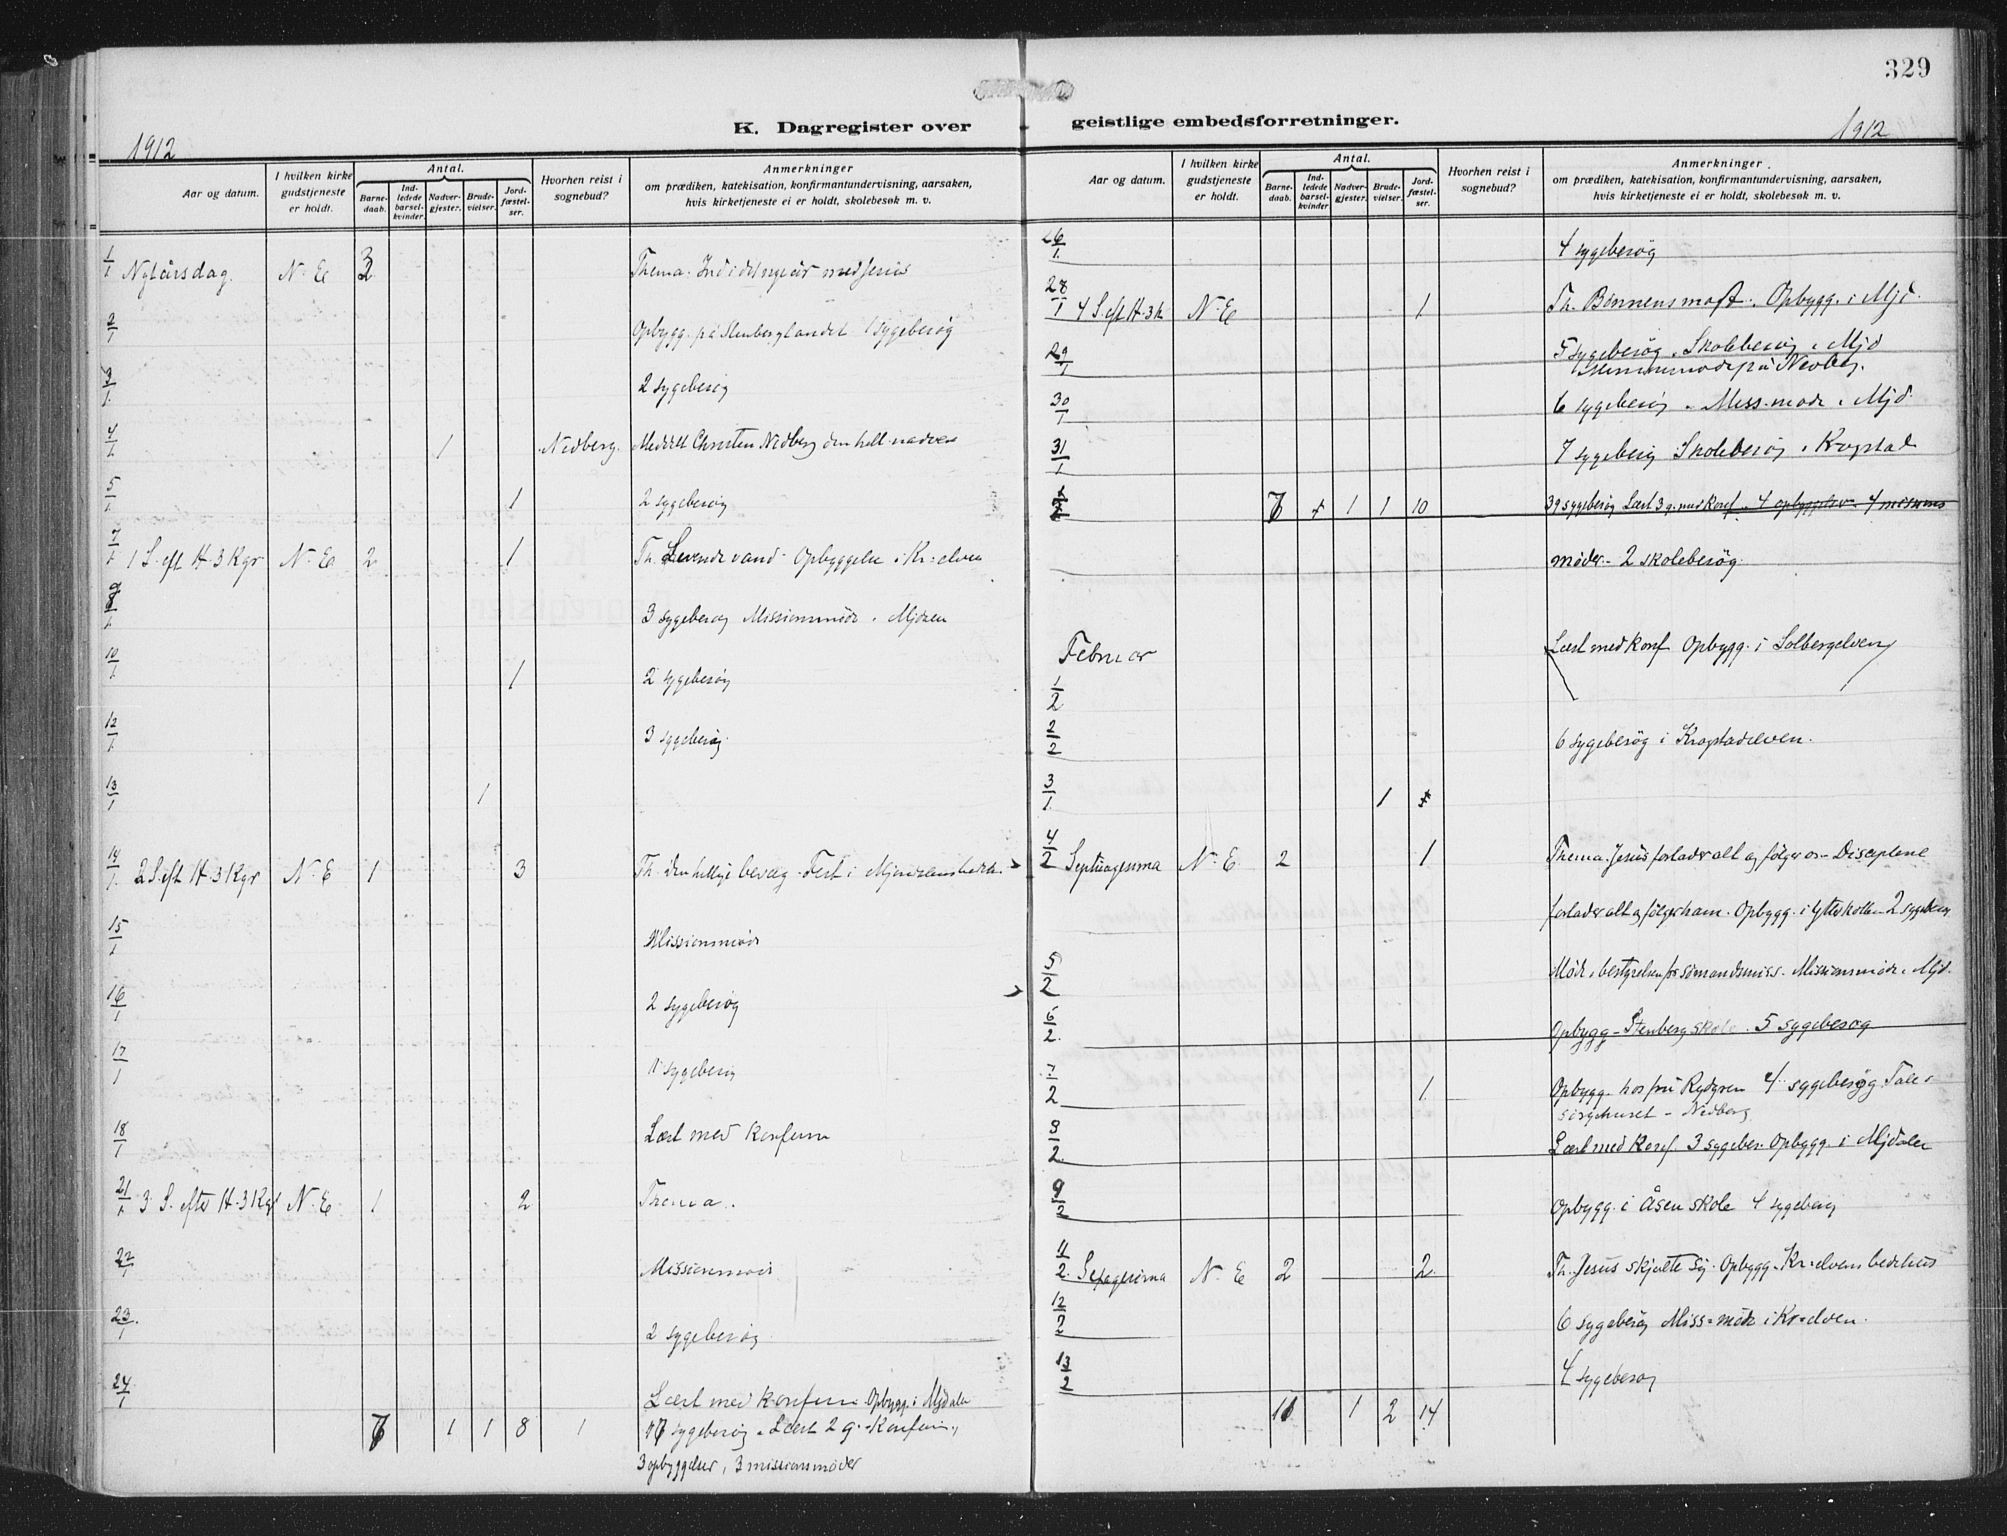 329
K. Dagregister over geistlige embedsforretninger.
1912
Aar og datum. I hvilken kirke gudstjeneste er holdt. Antal. Barne-daab. Ind-ledede barsel-kvinder Nadver-gjester. Brude-vielser. Jord-fæstel-ser. Hvorhen reist i sognebud? Anmerkninger
om prædiken, katekisation, konfirmantundervisning, aarsaken, hvis kirketjeneste ei er holdt, skolebesøk m. v.
1/1 Nytårsdag. N. E. Thema: Ind i det nye år med Jesus
2/1 Opbygg. på Stenberglandet 1 sygebesøg
3/1 2 sygebesøg
4/1 1 Nedberg. Meddelt Christen Nedberg den hell. nadver
5/1 1 2 sygebesøg
7/1 1 S. eft H. 3 Kgr N. E. 2 1 Th. Levende vand. Opbyggelse i Kr:elven
3 sygebesøg Missionsmøde i Mjdalen
10/1 1 2 sygebesøg
12/1 3 sygebesøg.
13/1 1
14/1 2 S. eft H. 3 Kgr N. E 1 3 Th. Den hellige bevæg. Fest i
15/1 Missionsmøde
16/1 2 sygebesøg
17/1 sygebesøg
18/1 Læst med Konferm
21/1 3 S. efter H. 3 Kgr N. E. 1 2 Thema.
22/1 Missionsmøde
23/1 2 sygebesøg
24/1 Læst med Konferm Opbygg. i Mjdalen
7 1 1 8 1 17 sygebesøg. Læst 2 g. Konferm.,
3 opbyggelser, 3 missionsmøder
1912
Aar og datum. I hvilken kirke gudstjeneste er holdt. Antal. Barne-daab. Ind-ledede barsel-kvinder Nadver-gjester. Brude-vielser. Jord-fæstel-ser. Hvorhen reist i sognebud? Anmerkninger.
om prædiken, katekisation, konfirmantundervisning, aarsaken, hvis kirketjeneste ei er holdt, skolebesøk m. v.
26/1 4 sygebesøg
28/1 4 S. eft H. 3 k N. E 1 Th. Bønnens magt. Opbygg. i Mjd.
29/1 5 sygebesøg. Skolebesøg i Mjd
på Nedberg.
30/1 6 sygebesøg. Miss. møde i Mjd.
31/1 7 sygebesøg Skolebesøg i Krogstad
7 1 1 10 39 sygebesøg Læst 3 g. med Konf. 4 opbyggelser 4 missions
møder. 2 skolebesøg.
Februar
1/2 Læst med Konf Opbygg. i Solbergelven
2/2 6 sygebesøg i Krogstadelven.
3/1 1
4/2 Septuagesima N. E 2 1 Thema. Jesus forlader alt og følger os. Disciplene
forlader alt og følger ham. Opbygg. i Ytterkollen 2 sygebesøg
5/2 Møde i bestyrelsen for sømandsmiss. Missionsmøde i Mjd.
6/2 Opbygg. Stenberg skole. 5 sygebesøg
7/2 1 Opbygg. hos fru Rydgren 4 sygebesøg. Tale i
sørgehuset Nedberg
8/2 Læst med Konf. 3 sygebes. Opbygg. i Mjdalen
9/2 Opbygg. i Åsen skole 4 sygebesøg
11/2 Sexagesima N. E 2 2 Th. Jesus skjulte sig. Opbygg. Kr:elvens bedehus
12/2 6 sygebesøg Miss=møde i Kr=elven.
13/2 4 sygebesøg
11 1 2 14